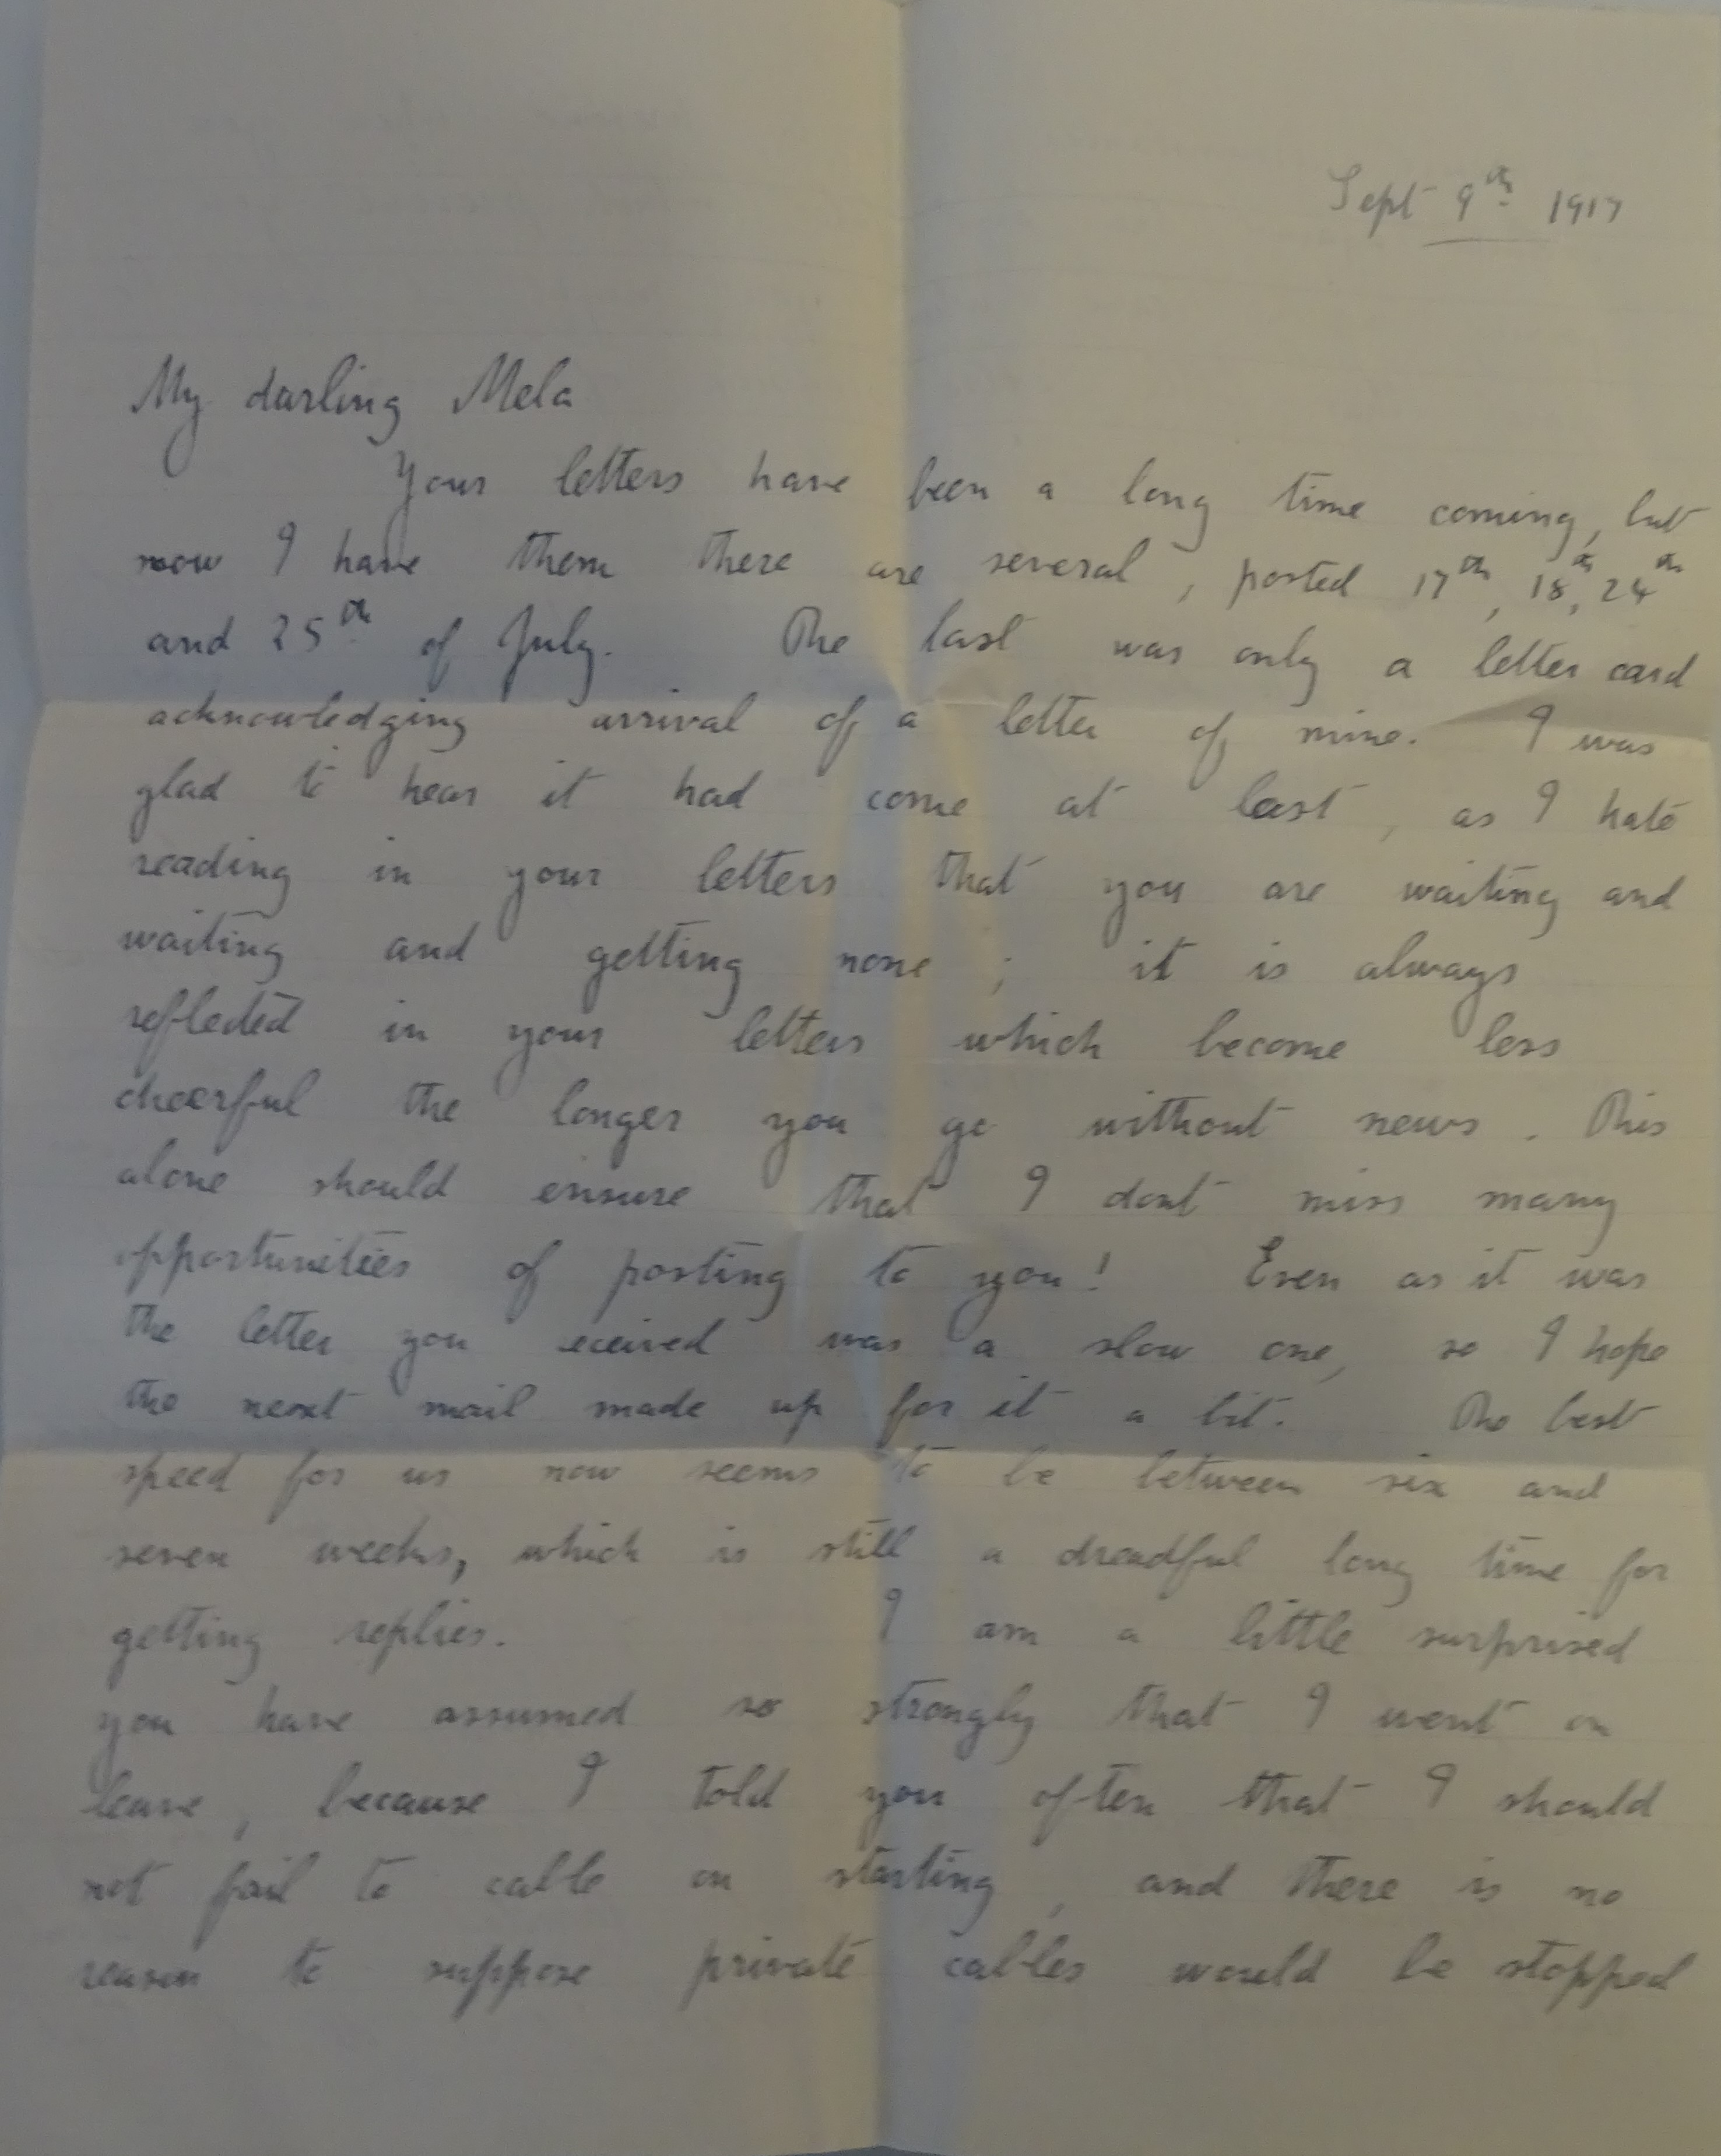 Sept 9th 1917
My darling Mela
Your letters have been a long time coming, but
now I have them there are several, posted 17th, 18th, 24th
and 25th of July. The last was only a letter card
acknowledging arrival of a letter of mine. I was
glad to hear it had come at last, as I hate
reading in your letters that you are waiting and
waiting and getting none; it is always
reflected in your letters which become less
cheerful the longer you go without news. This
alone should ensure that I dont miss many
opportunities of posting to you! Even as it was
the letter you eceived was a slow one, so I hope
the next mail made up for it a bit. The best
speed for us now seems to be between six and
seven weeks, which is still a dreadful long time for
getting replies. I am a little surprised
you have assumed so strongly that I went on
leave, because I told you often that I should
not fail to cable on starting, and there is no
reason to suppose private cables would be stopped